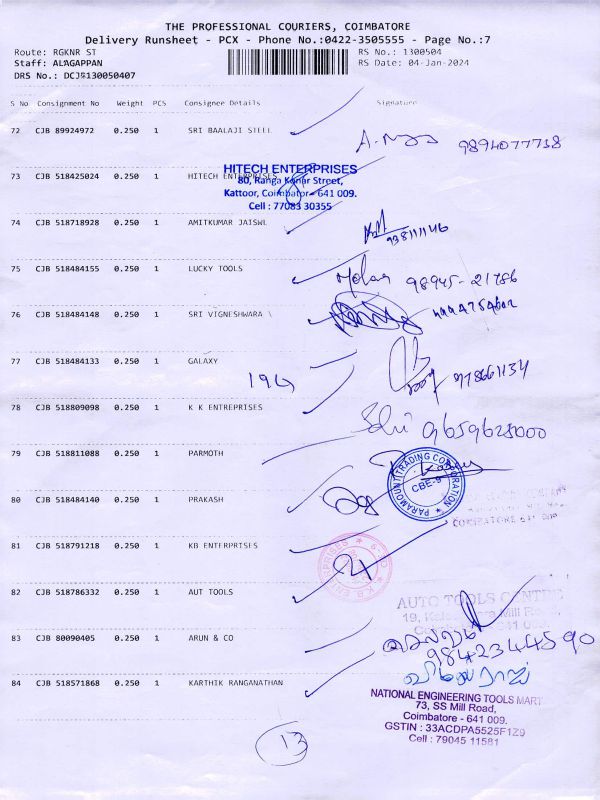 THE PROFESSIONAL COURIERS, COIMBATORE
Delivery Runsheet - PCX - Phone No.:0422-3505555 - Page No.:7
Route: RGKNR ST RS No.: 1300504
Staff: ALAGAPPAN RS Date: 04-Jan-2024
DRS No.: DCJB130050407
S No Consignment No Weight PCS Consignee Details Signature
72 CJB 89924972 0.250 1 SRI BAALAJI STEEL
9894077738
73 CJB 518425024 0.250 1 HITECH ENTERPRISES
HITECH ENTERPRISES
80, Ranga Konar Street,
Kattoor, Coimbatore - 641 009.
Cell : 77083 30355
74 CJB 518718928 0.250 1 AMITKUMAR JAISWL
9381111146
75 CJB 518484155 0.250 1 LUCKY TOOLS
98945-21786
76 CJB 518484148 0.250 1 SRI VIGNESHWARA \
77 CJB 518484133 0.250 1 GALAXY
78 CJB 518809098 0.250 1 K K ENTREPRISES
9659628000
79 CJB 518811088 0.250 1 PARMOTH
PARAMOUNT TRADING CORPORATION
CBE-9
80 CJB 518484140 0.250 1 PRAKASH
COIMBATORE
81 CJB 518791218 0.250 1 KB ENTERPRISES
KB ENTERPRISES
82 CJB 518786332 0.250 1 AUT TOOLS
AUTO TOOLS CENTRE
Mill
83 CJB 80090405 0.250 1 ARUN & CO
9842344590
84 CJB 518571868 0.250 1 KARTHIK RANGANATHAN
NATIONAL ENGINEERING TOOLS MART
73, SS Mill Road,
Coimbatore - 641 009.
GSTIN : 33ACDPA5525F1Z9
Cell : 79045 11581
13